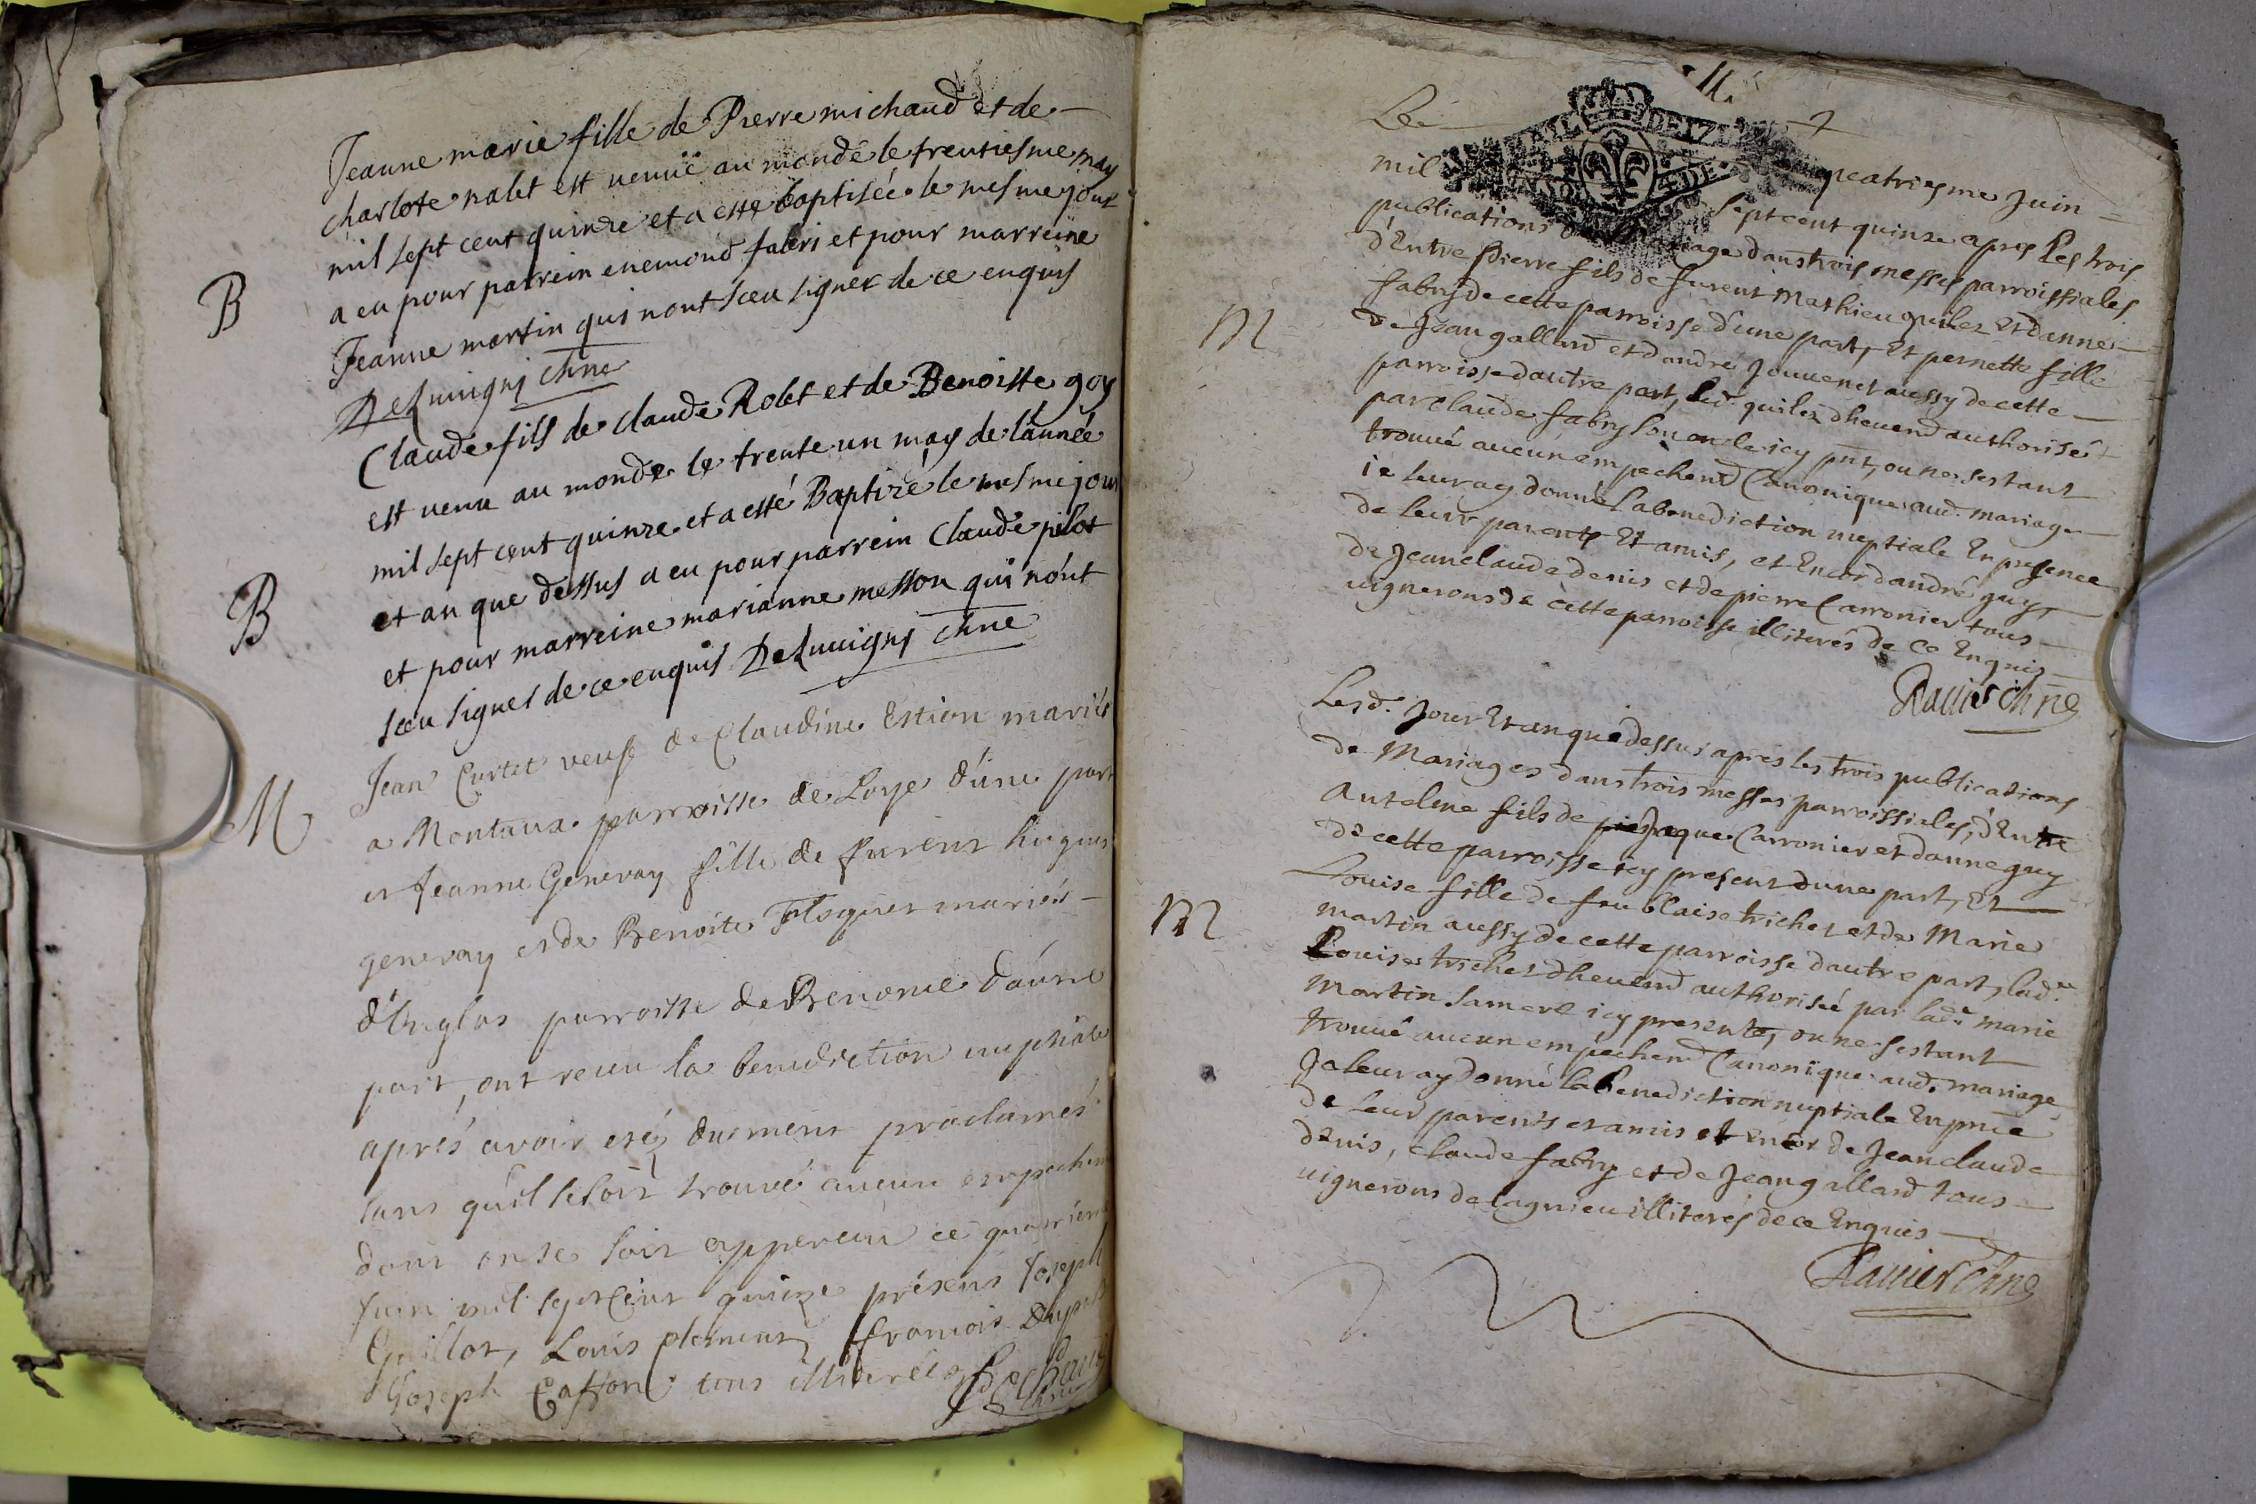 Jeanne marie fille de Pierre michaud et de
charlote nalet est venuë au monde le trentiesme may
mil sept cent quinze et a esté baptisée le mesme jour
B
a eu pour parrein enemond fabri et pour marreine
Jeanne martin qui nont sceu signer de ce enquis
DeLuvigny chne
Claude fils de claude Rolet et de Benoiste goy
est venu au monde le trente un may de l'année
mil sept cent quinze et a esté Baptizé le mesme jour
B
et an que dessus a eu pour parrein Claude pilot
et pour marreine marianne messon qui n'ont
sceu signer de ce enquis DeLuvigny chne
Jean Curtet veuf de Claudine Estion mariés
M
a Montaux parroisse de Loye d'une part
et Jeanne Genevay fille de furent hugues
genevay et de Benoite mariés
parroisse de d'autre
part, ont receu la benediction nuptiale
aprés avoir eté duement proclamés
sans qu'il se soit trouvé aucun empechem
dont on se soit apperceu ce quatriéme
Juin mil sept cent quinze présens Joseph
Guillot, Louis francois
Joseph tous illiterés
11.
Le
mil quatriesme Juin
sept cent quinze apres Les trois
publications de mariage dans trois messes parroissiales
d'Entre pierre fils de furent Mathieu quilez Et d'anne
M
fabry de cette parroisse d'une part, Et pernette fille
de Jean gallard et d'andre Jouvenet aussy de cette
parroisse d'autre part, led. quilez dheuemd authorisé
par claude fabry son oncle icy pnt, ou ne sestant
trouvé aucun empechemd Canonique aud. mariage
ie leur ay donné la benediction nuptiale En presence
de leurs parents Et amis, et Encor d'andré guy
de Jean claude denis et de pierre Carronier tous
vignerons de cette parroisse illiterés de ce Enquis
Ravier chne
Lesd. Jour Et an que dessus aprés les trois publications
de Mariages dans trois messes parroissiales, d'Entre
Antelme fils de Jaque Carronier et d'anne guy
de cette parroisse icy present d'une part, Et
M
Louise fille de feu blaise trichet et de Marie
martin aussy de cette parroisse d'autre part, lad.
Louise trichet dheuemd authorisée par lad. marie
Martin sa mere icy presente, ou ne sestant
trouvé aucun empechemd Canonique aud. mariage
Je leur ay donné la benediction nuptiale En pnce
de leur parents et amis et encor de Jean claude
denis, claude fabry et de Jean gallard tous
vignerons de lagnieu illiterés de ce Enquis
Ravier Chne